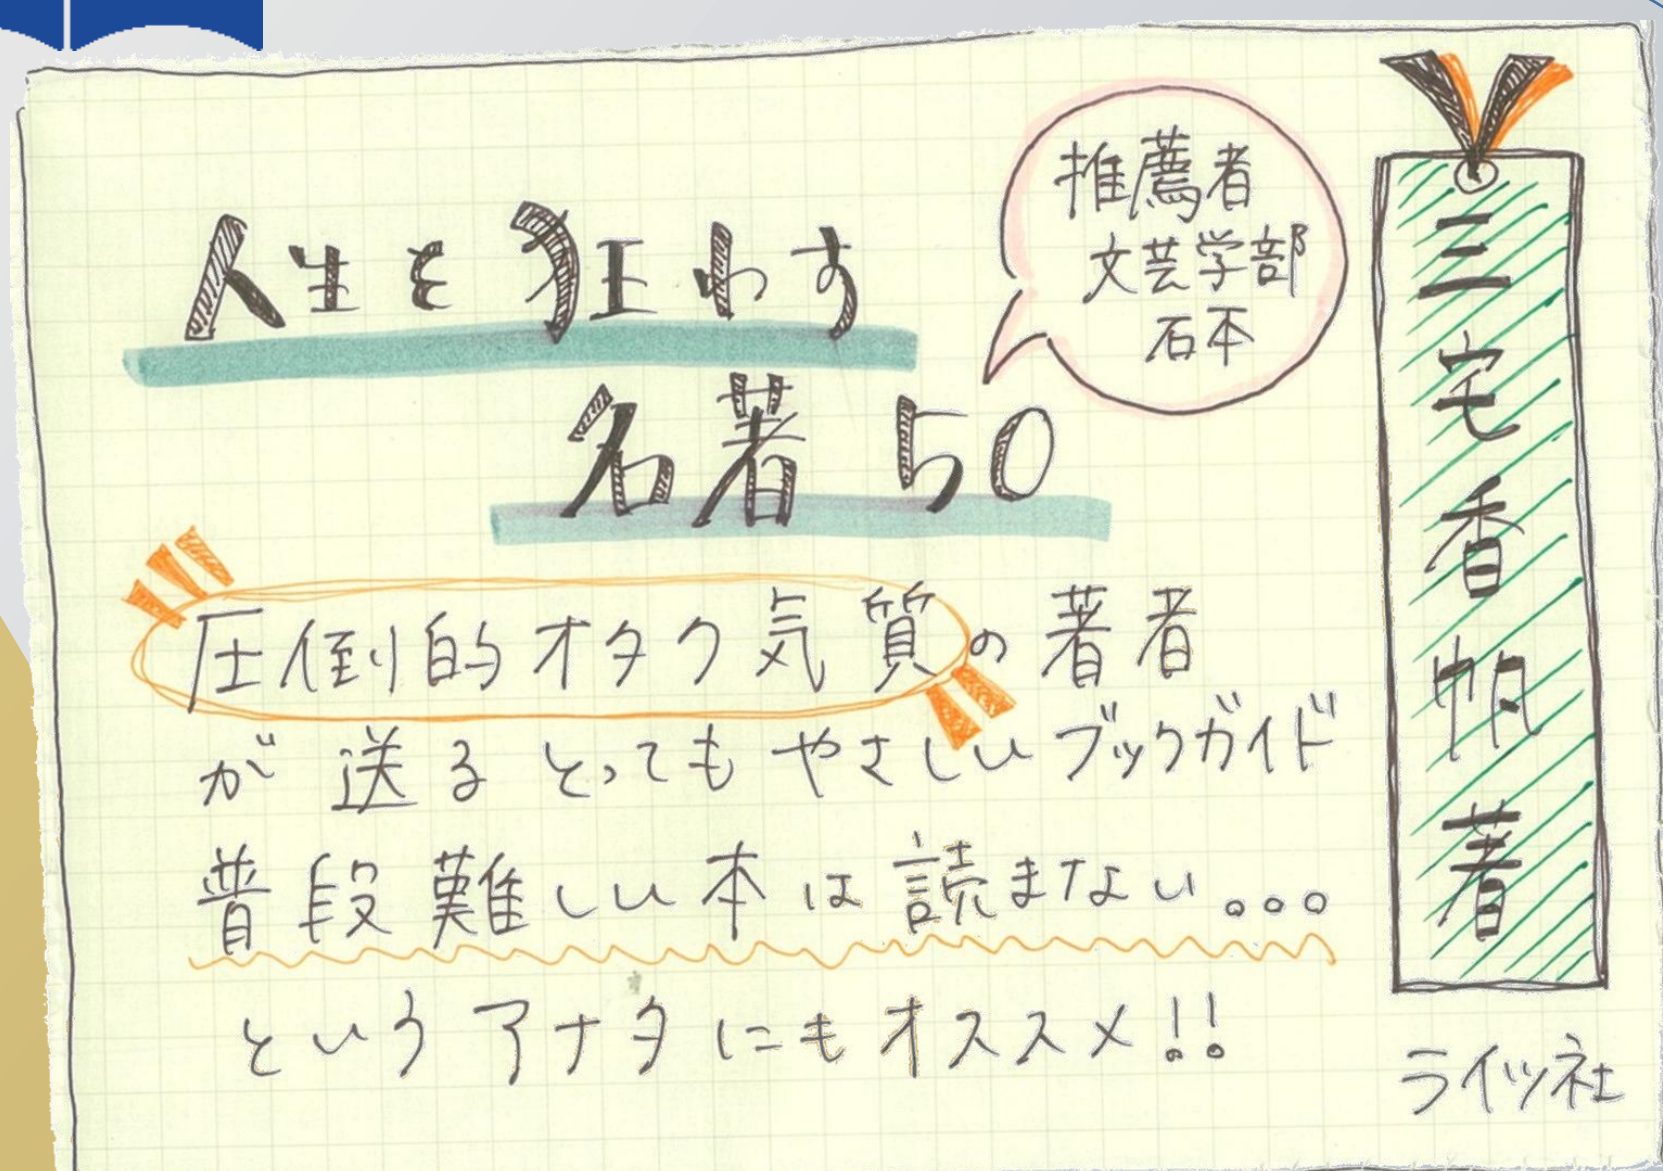 人生を狂わす
名著50
推薦者
文芸学部
石本
圧倒的オタク気質の著者
が送るとってもやさしいブックガイド
普段難しい本は読まない...
というアナタにもオススメ!!
三宅香帆著
ライツ社